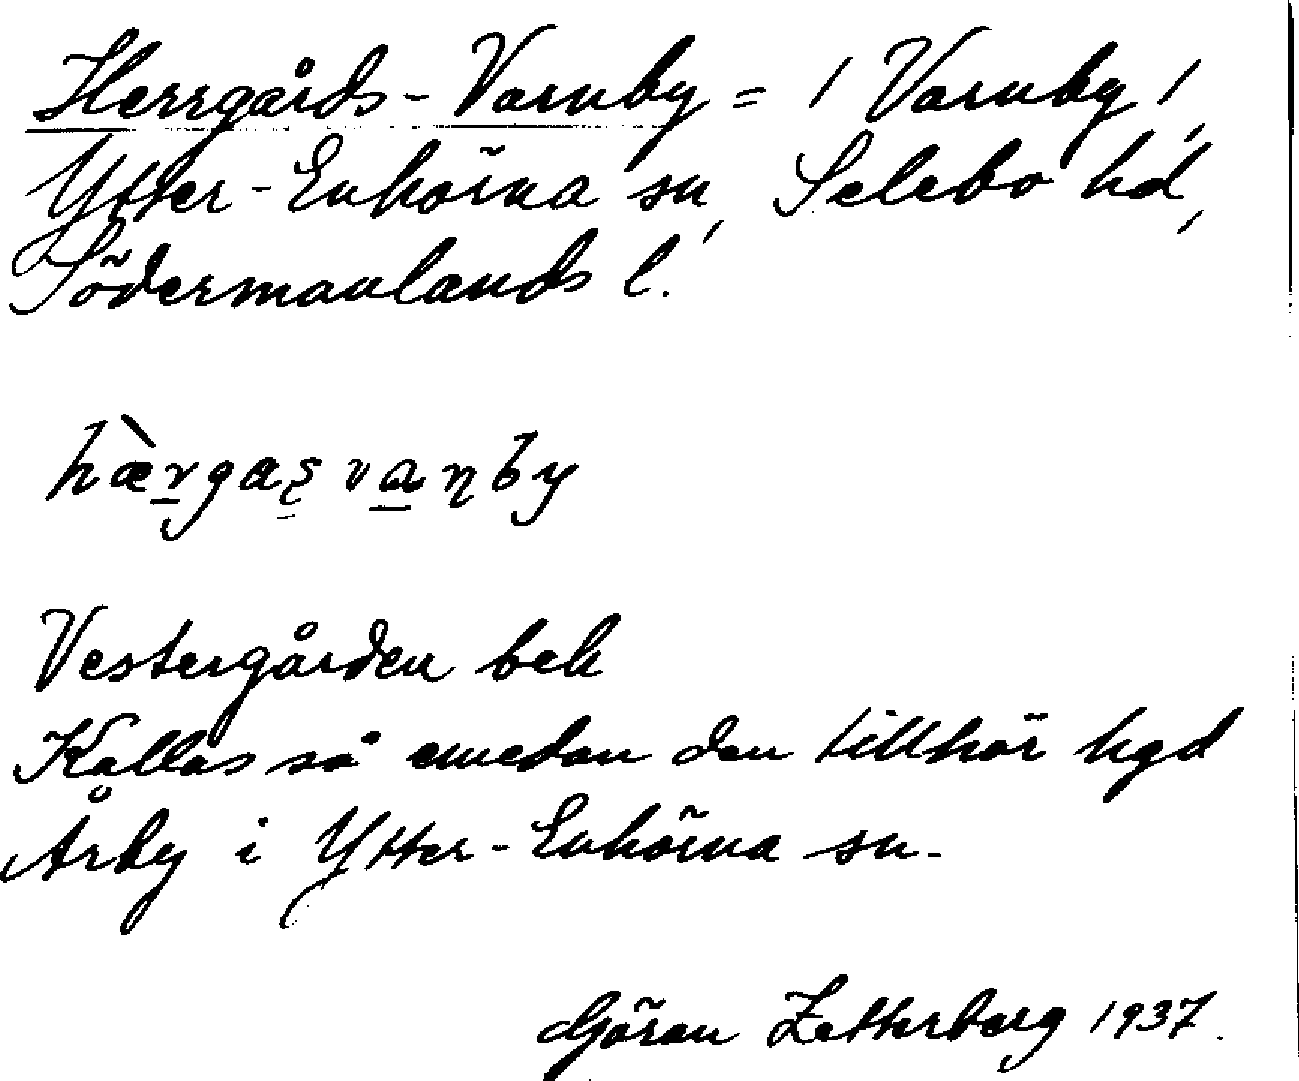 Herrgårds-Varnby = 1 Varnby 1,
Ytter-Enhörna sn, Selebo hd,
Södermanlands l.
hæ̀rgaș vaṇby
Vestergården beb
Kallas så emedan den tillhör hgd
Årby i Ytter-Enhörna sn.
Göran Zetterberg 1937.